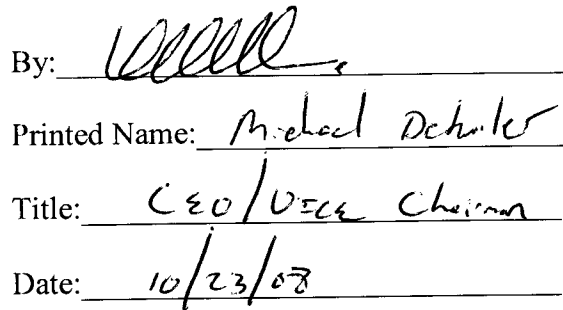 By:
Printed Name: Michael
Title: CEO/VICE Chairman
Date: 10/23/08